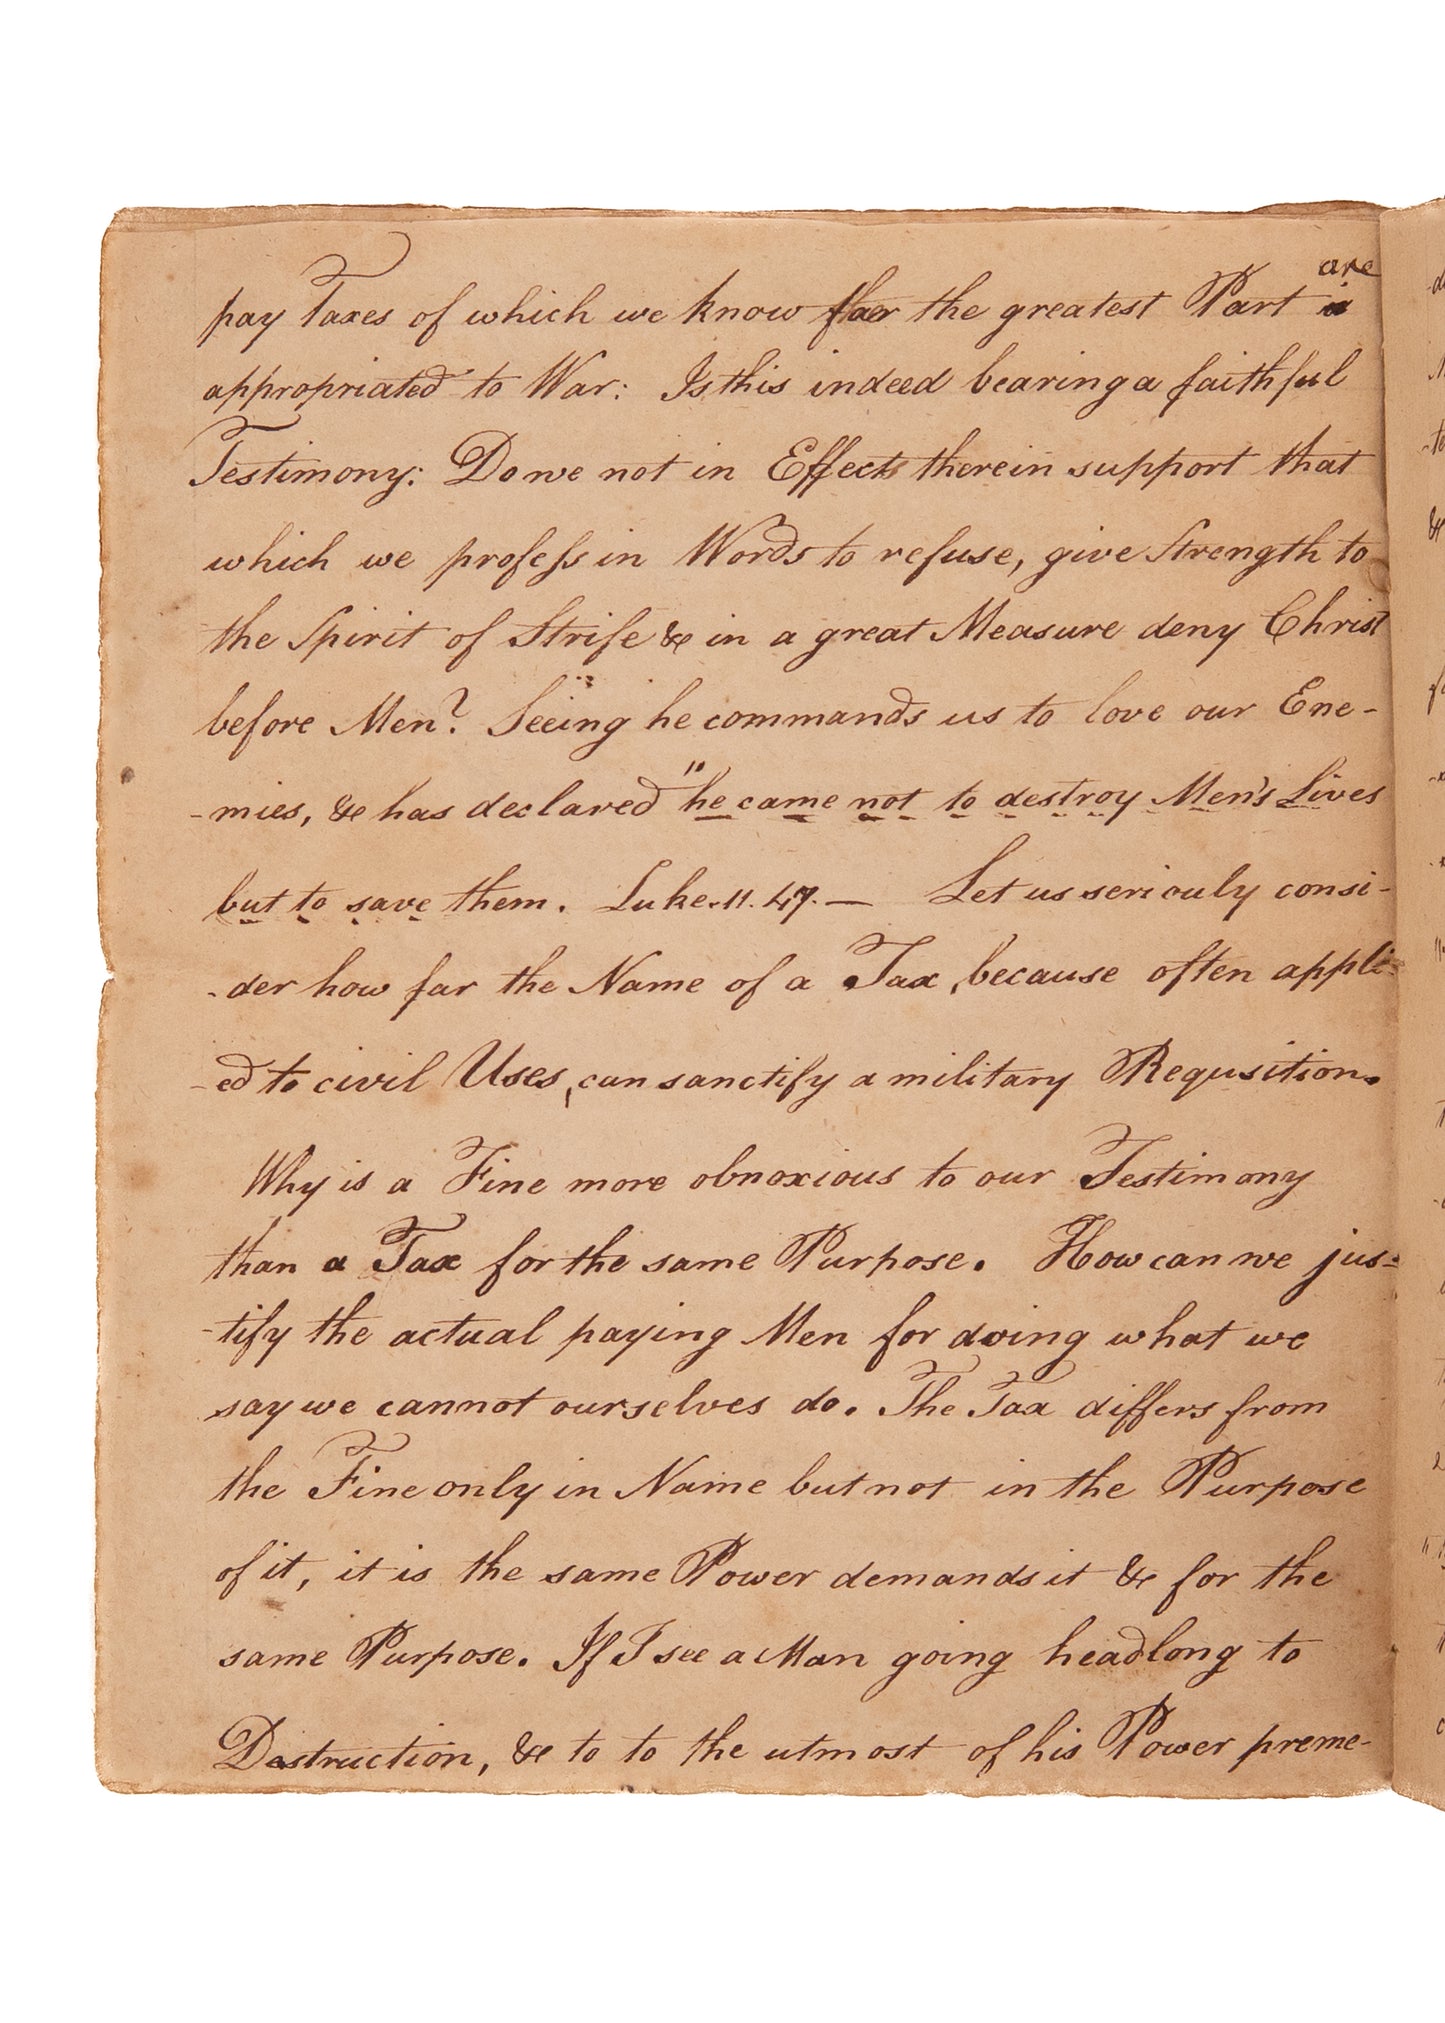 are
pay Taxes of which we know far the greatest Part is
appropriated to War: Is this indeed bearing a faithful
Testimony: Do we not in Effects therein support that
which we profeſs in Words to refuse, give Strength to
the Spirit of Strife & in a great Measure deny Christ
before Men? Seeing he commands us to love our Ene-
-mies, & has declared "he came not to destroy Men's Lives
but to save them. Luke. 11. 47. — Let us seriouly consi-
-der how far the Name of a Tax, because often appli-
-ed to civil Uses, can sanctify a military Requsition.
Why is a Fine more obnoxious to our Testimony
than a Tax for the same Purpose. How can we jus-
-tify the actual paying Men for doing what we
say we cannot ourselves do. The Tax differs from
the Fine only in Name but not in the Purpose
of it, it is the same Power demands it & for the
same Purpose. If I see a Man going headlong to
Destruction, & to to the utmost of his Power preme-